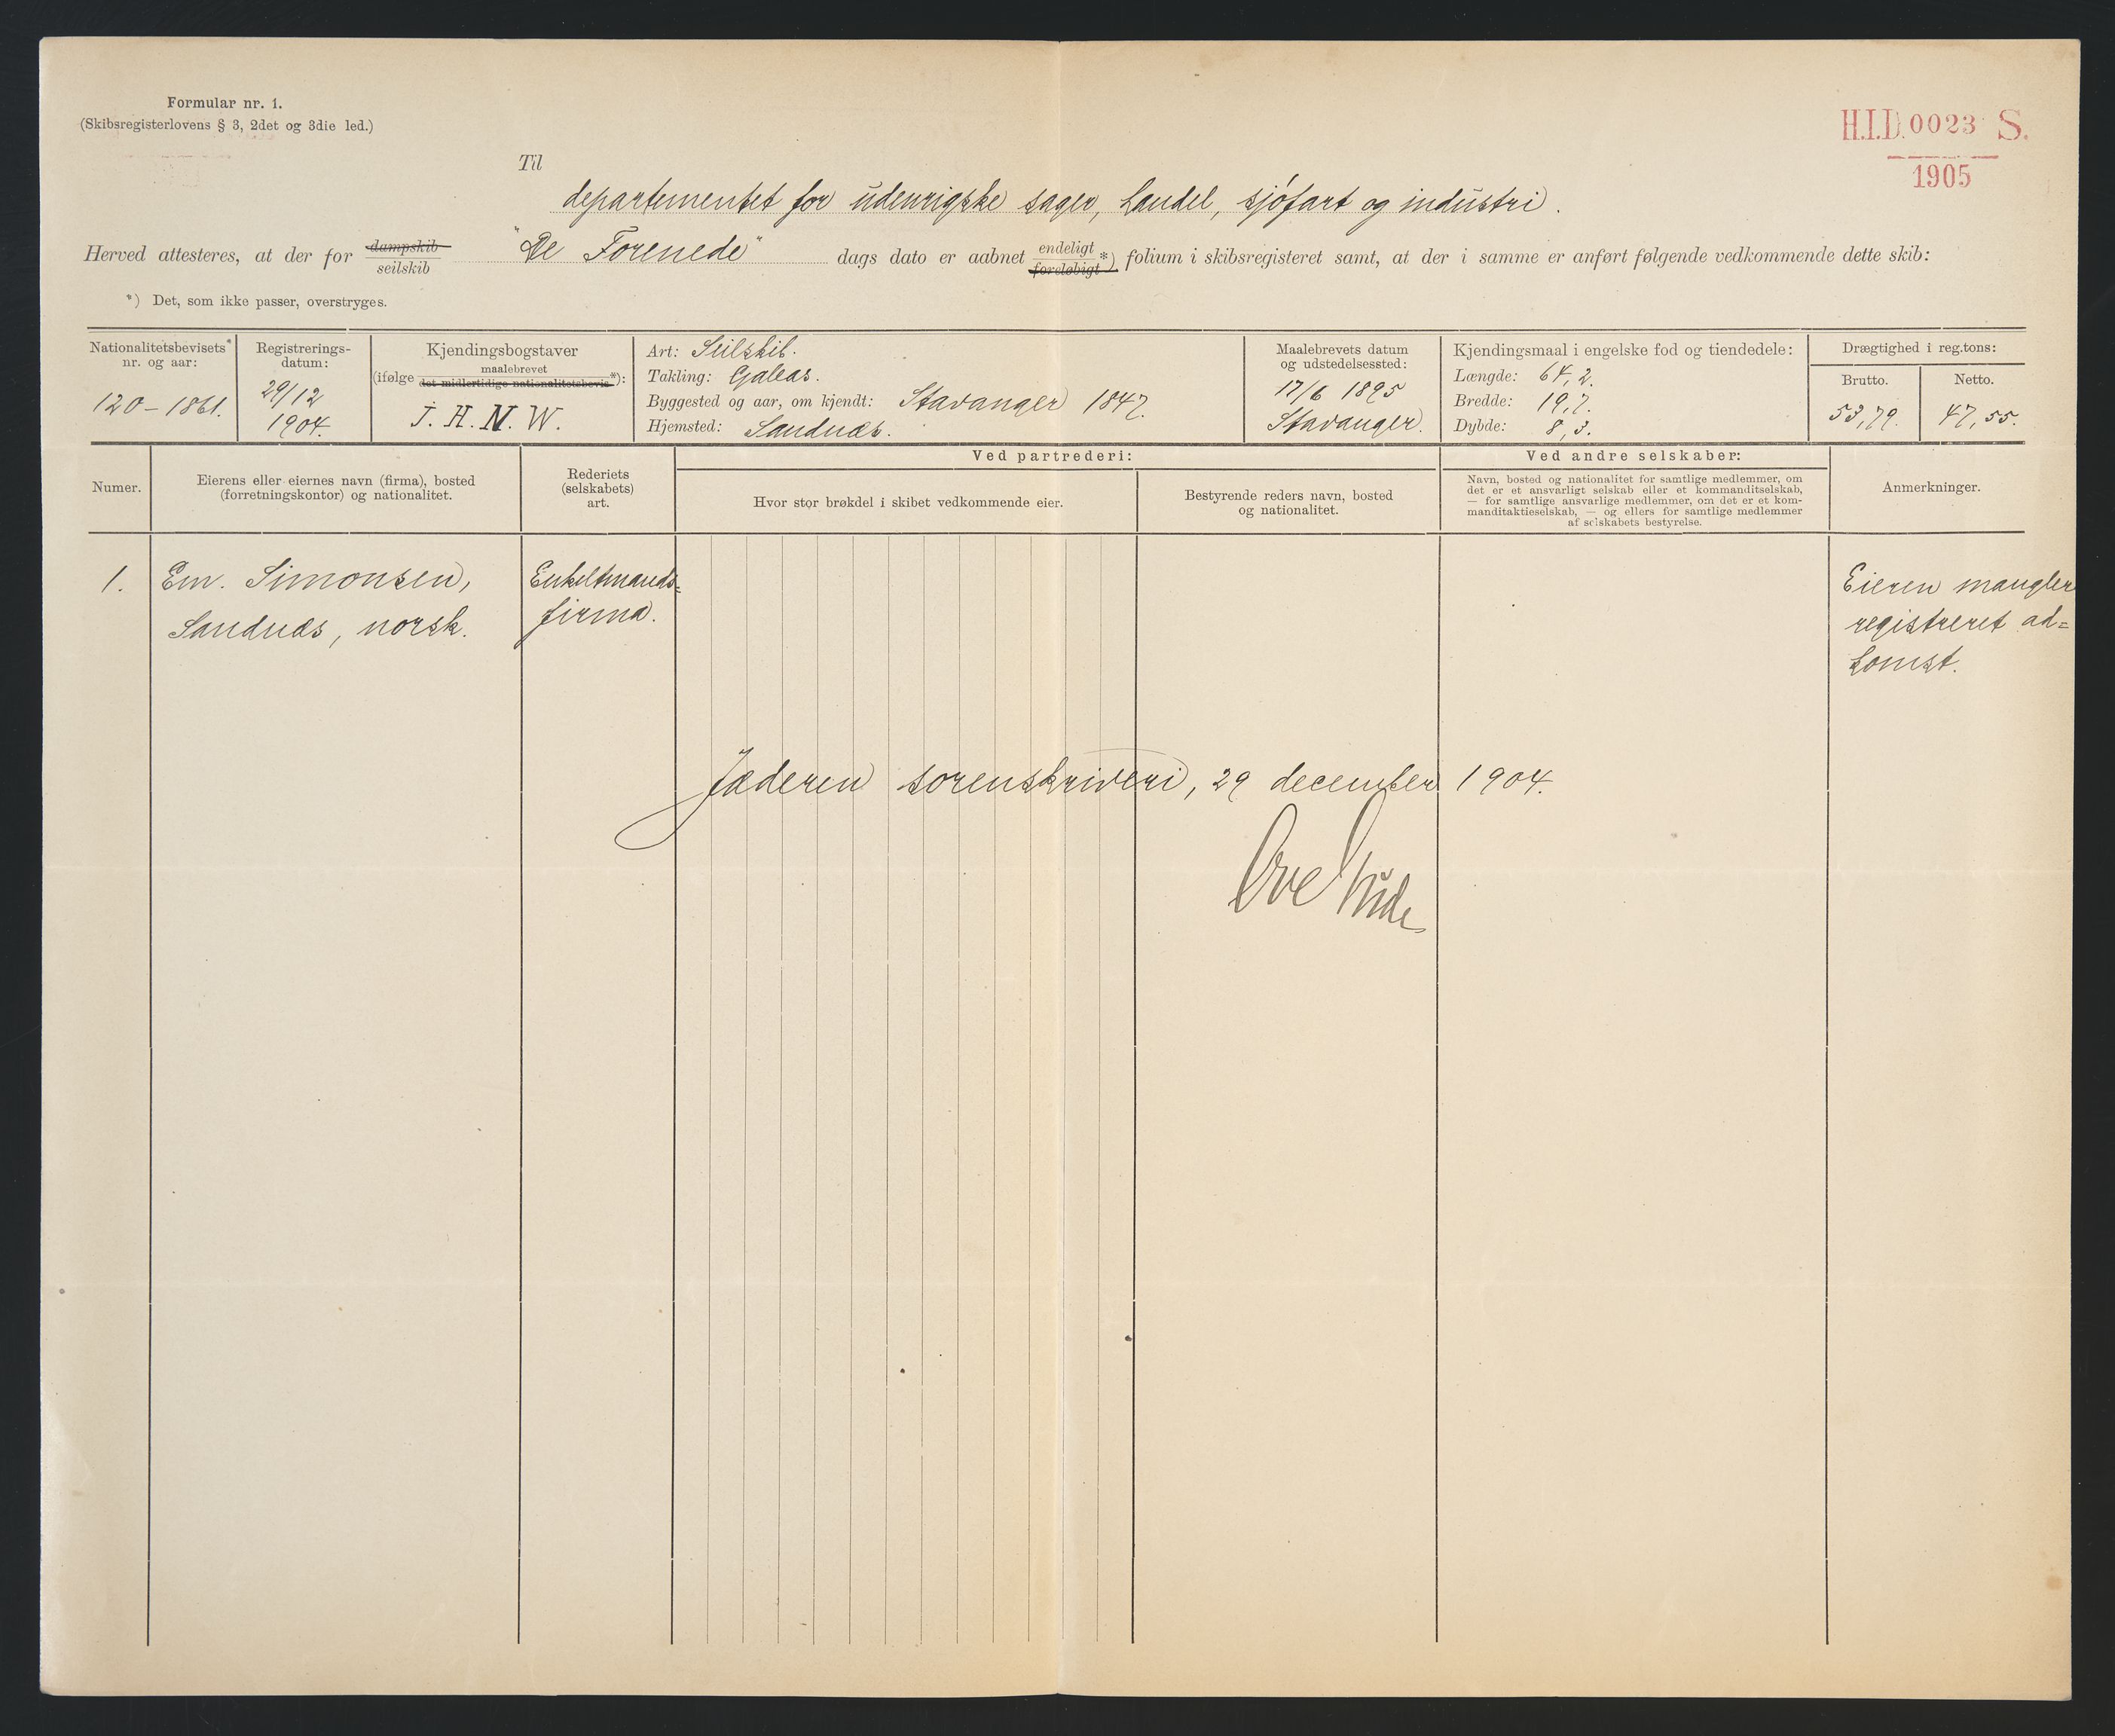 Formular nr. 1.
(Skibsregisterlovens § 3, 2det og 3die led.)
H.I.D. 0023 S.
1905
Til
departementet for udenrigske sager, handel, sjøfart og industri.
Herved attesteres, at der for dampskib seilskib "De Forenede" dags dato er aabnet endeligt foreløbigt *) folium i skibsregisteret samt, at der i samme er anført følgende vedkommende dette skib:
*) Det, som ikke passer, overstryges.
Nationalitetsbevisets*
nr. og aar:
120 - 1861.
Registrerings-
datum:
29/12
1904.
Kjendingsbogstaver
(ifølge maalebrevet det midlertidige nationalitetsbevis *):
J. H. N. W.
Art: Seilskib.
Takling: Galeas.
Byggested og aar, om kjendt: Stavanger 1847.
Hjemsted: Sandnæs.
Maalebrevets datum
og udstedelsessted:
17/6 1895
Stavanger.
Kjendingsmaal i engelske fod og tiendedele:
Længde: 64,2.
Bredde: 19,7.
Dybde: 8,3.
Drægtighed i reg.tons:
Brutto.
53,79.
Netto.
47,55.
Numer.
Eierens eller eiernes navn (firma), bosted
(forretningskontor) og nationalitet.
Rederiets
(selskabets)
art.
Ved partrederi:
Hvor stor brøkdel i skibet vedkommende eier.
Bestyrende reders navn, bosted
og nationalitet.
Ved andre selskaber:
Navn, bosted og nationalitet for samtlige medlemmer, om
det er et ansvarligt selskab eller et kommanditselskab,
— for samtlige ansvarlige medlemmer, om det er et kom-
manditaktieselskab, — og ellers for samtlige medlemmer
af selskabets bestyrelse.
Anmerkninger.
1.
Em. Simonsen,
Sandnæs, norsk.
Enkeltmands=
firma.
Eieren mangler
registreret ad=
komst.
Jæderen sorenskriveri, 29 december 1904.
Ove Gude